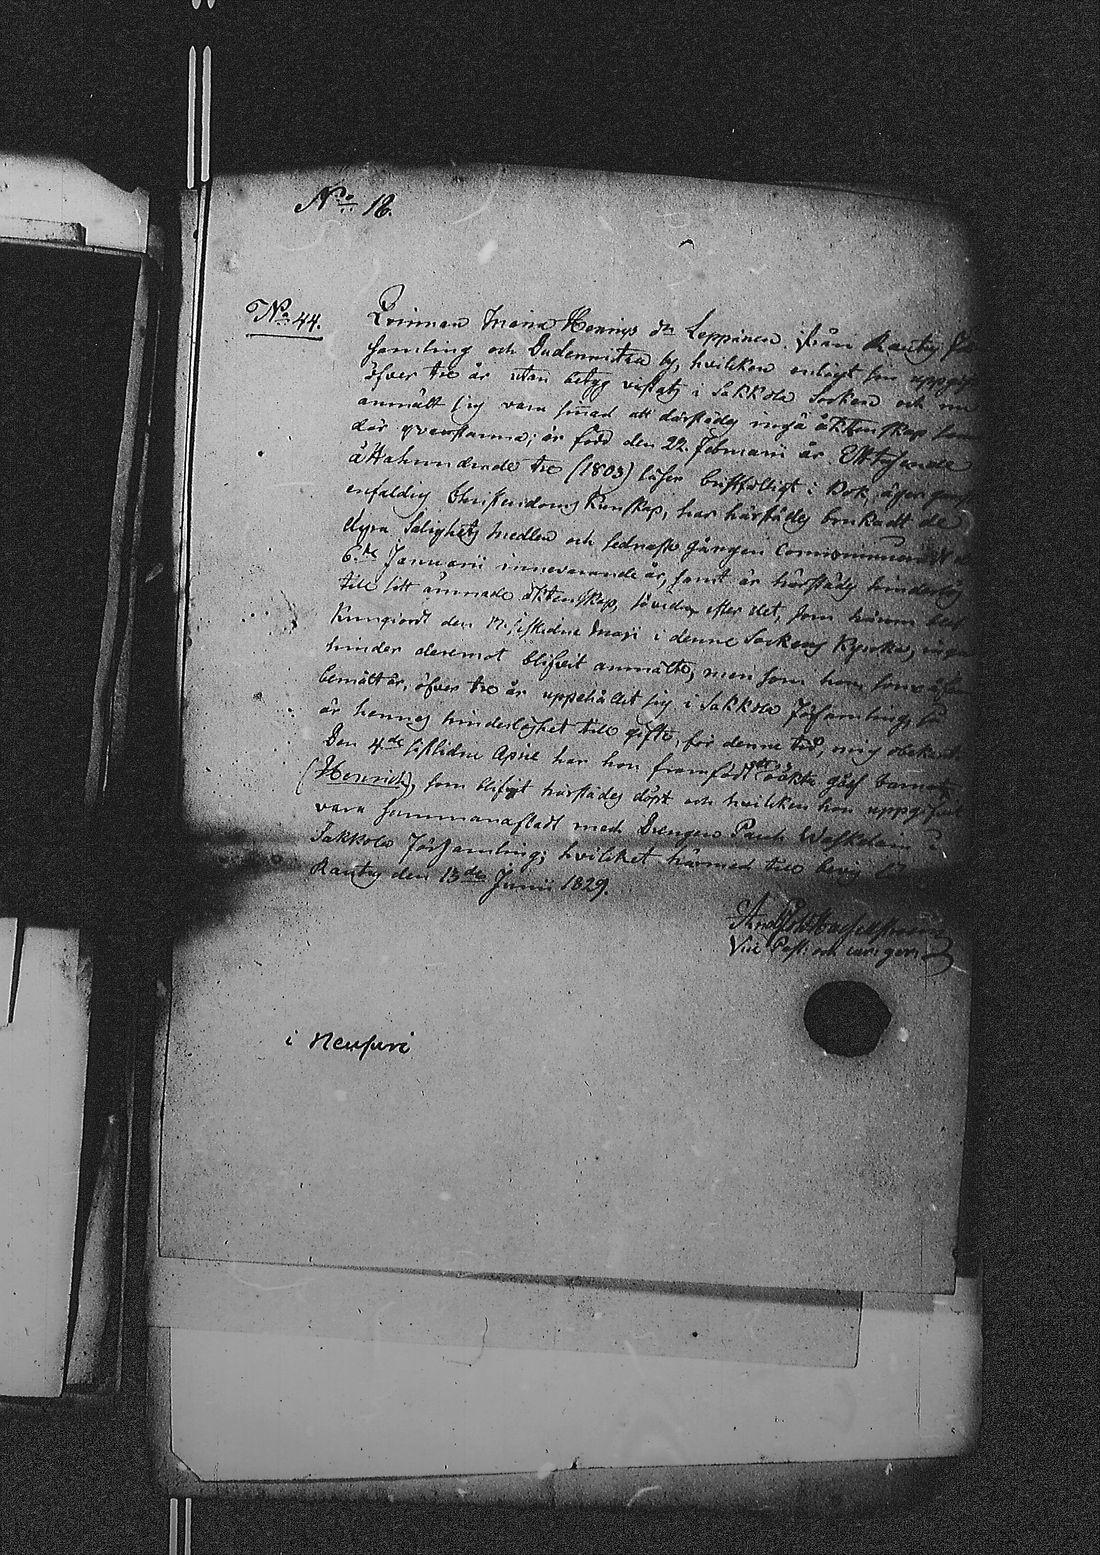 No 18.
No 44.
Qvinnan Maria Henrics dr Leppänen från Rautus
samling och by, hvilken enligt sin uppgift
öfver tre år utan betyg vistats i Sakkola Socken och nu
anmält sig vara sinnad att därstädes ingå äktenskap samt
där qvarstanna; är född den 22 Februarii år Ettusende
åttahundrade tre (1803) läser i Bok, äger
enfaldig Christendoms Kunskap, har härstädes brukadt de
dyra Salighets medlen och sednaste gången Communicerat
6te Januarii innevarande år, samt är härstädes hinderlös
till sitt ämnade äktenskap, sedan efter det, som härom blef
Kungjordt den 17 sistledne Maji i denne Sockens Kyrka, ingen
hinder deremot blifvit anmälte, men som hon, som
bemält är, öfver tre år uppehållit sig i Sakkola Församling, så
är hennes hinderlöshet till gifte, för denne tid, mig obekant.
Den 4de sistlidne April har hon framfödt ett oäkta barn
(Henrich), som blifvit härstädes döpt och hvilken hon uppgifvit
vara sammanafladt med Drengen Paul i
Sakkola Församling; hvilket härmed till bevis
Rautus den 13de Junii 1829.
Vice Past: och
i Neusuri